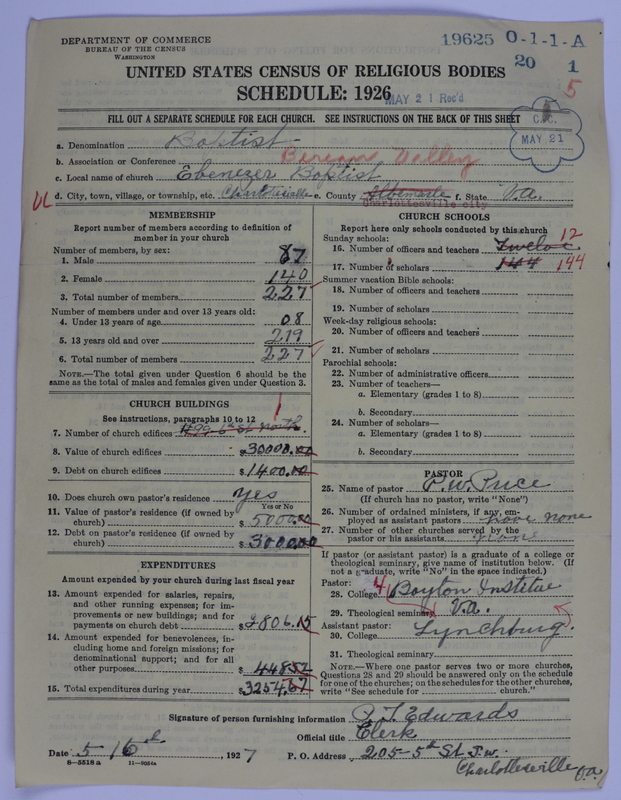 DEPARTMENT OF COMMERCE
BUREAU OF THE CENSUS
WASHINGTON
19625 0-1-1-A
20 1
5
UNITED STATES CENSUS OF RELIGIOUS BODIES
SCHEDULE: 1926
MAY 21 Rec'd
FILL OUT A SEPARATE SCHEDULE FOR EACH CHURCH. SEE INSTRUCTIONS ON THE BACK OF THIS SHEET
C.C.
MAY 21
a. Denomination Baptist
b. Association or Conference Bereans Valley
c. Local name of church Ebenezer Baptist
d. City, town, village, or township, etc. Charlottesville e. County Albemarle f. State Va.
Charlottesville city
MEMBERSHIP
Report number of members according to definition of
member in your church
Number of members, by sex:
1. Male 87
2. Female 140
3. Total number of members 227
Number of members under and over 13 years old:
4. Under 13 years of age 08
5. 13 years old and over 219
6. Total number of members 227
NOTE.—The total given under Question 6 should be the
same as the total of males and females given under Question 3.
CHURCH BUILDINGS
See instructions, paragraphs 10 to 12
1
7. Number of church edifices
8. Value of church edifices $30000.00
9. Debt on church edifices $1400.00
10. Does church own pastor's residence yes
Yes or No
11. Value of pastor's residence (if owned by
church) $5000.00
12. Debt on pastor's residence (if owned by
church) $3000.00
EXPENDITURES
Amount expended by your church during last fiscal year
13. Amount expended for salaries, repairs,
and other running expenses; for im-
provements or new buildings; and for
payments on church debt $2806.15
14. Amount expended for benevolences, in-
cluding home and foreign missions; for
denominational support; and for all
other purposes $448.52
15. Total expenditures during year $3254.67
CHURCH SCHOOLS
Report here only schools conducted by this church
Sunday schools:
16. Number of officers and teachers Twelve 12
17. Number of scholars 144 144
Summer vacation Bible schools:
18. Number of officers and teachers
19. Number of scholars
Week-day religious schools:
20. Number of officers and teachers
21. Number of scholars
Parochial schools:
22. Number of administrative officers
23. Number of teachers—
a. Elementary (grades 1 to 8)
b. Secondary
24. Number of scholars—
a. Elementary (grades 1 to 8)
b. Secondary
PASTOR
25. Name of pastor P.W. Price
(If church has no pastor, write "None")
26. Number of ordained ministers, if any, em-
ployed as assistant pastors have none
27. Number of other churches served by the
pastor or his assistants none
If pastor (or assistant pastor) is a graduate of a college or
theological seminary, give name of institution below. (If
not a graduate, write "No" in the space indicated.)
Pastor: 4
28. College Boyton Institue
29. Theological seminary Va.
Assistant pastor:
30. College Lynchburg
31. Theological seminary
NOTE.—Where one pastor serves two or more churches,
Questions 28 and 29 should be answered only on the schedule
for one of the churches; on the schedules for the other churches,
write "See schedule for church."
Signature of person furnishing information P. T. Edwards
Official title Clerk
Date 5-16, 1927 P. O. Address 205-5th St S.W.
8-5518 a Charlottesville Va.